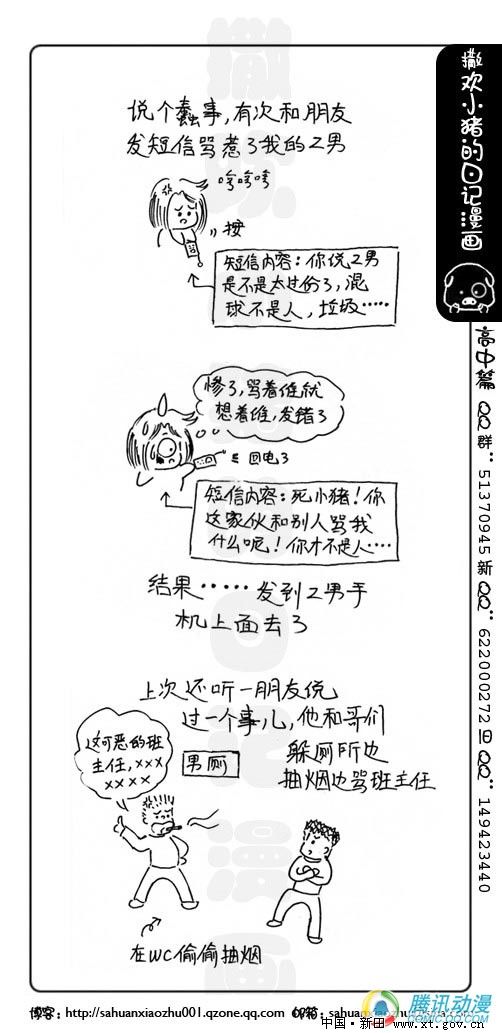 说个蠢事,有次和朋友
发短信骂惹了我的Z男
哼哼哼
按
短信内容:你说Z男
是不是太过份了,混
球不是人,垃圾……
惨了,骂着谁就
想着谁,发错了
回电了
短信内容:死小猪!你
这家伙和别人骂我
什么呢!你才不是人……
结果……发到Z男手
机上面去了
上次还听一朋友说
过一个事儿,他和哥们
躲厕所边
抽烟边骂班主任
这可恶的班
主任,×××
××××
男厕
在WC偷偷抽烟
撒欢小猪的日记漫画
高中篇 QQ群:51370945 新QQ:622000272 旧QQ:149423440
博客:http://sahuanxiaozhu001.qzone.qq.com 邮箱:sahuanxiaozhu
腾讯动漫
中国·新田—www.xt.gov.cn